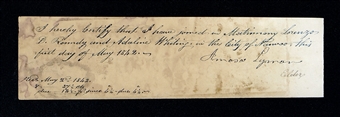 I hereby Certify that I have joined in Matrimony Lorenzo
D. Kennedy and Adaline Whiting in the City of Nauvoo this
first day of May 1842.
Amasa Lyman
Elder
May 2nd 1842